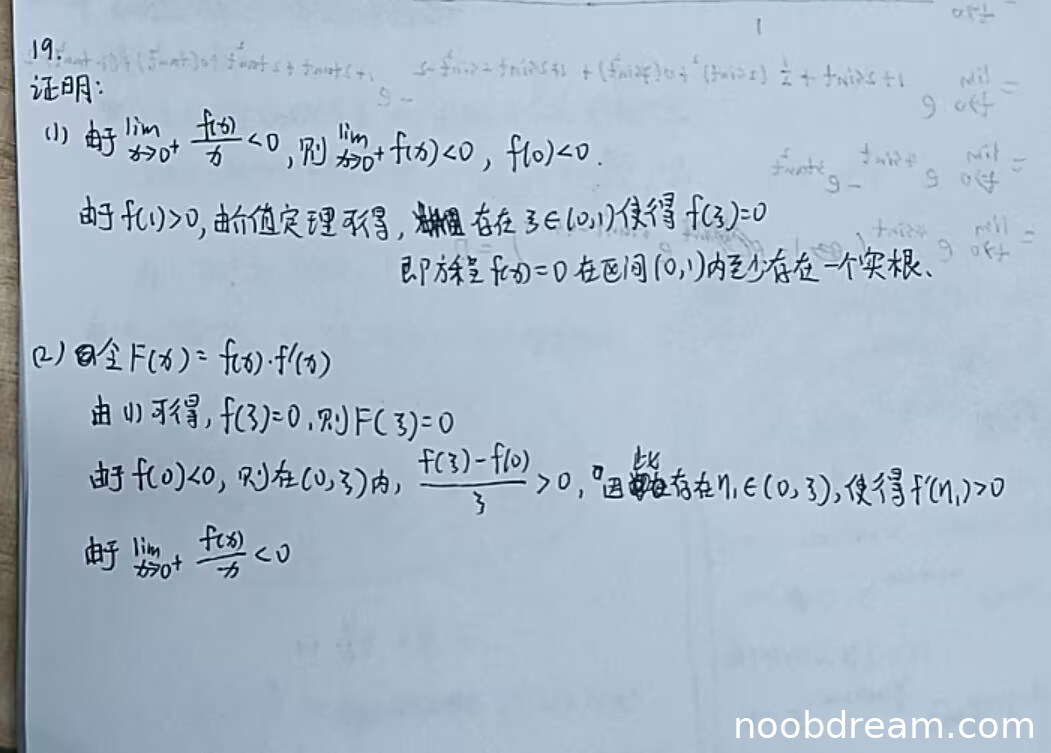 19.
证明:
(1) 由于 lim x→0⁺ f(x)/x <0, 则 lim x→0⁺ f(x)<0, f(0)<0.
由于 f(1)>0, 由介值定理可得, 存在 ξ∈(0,1) 使得 f(ξ)=0
即方程 f(x)=0 在区间(0,1)内至少存在一个实根、
(2) 令 F(x)= f(x)·f'(x)
由(1)可得, f(ξ)=0, 则 F(ξ)=0
由于 f(0)<0, 则在(0,ξ)内, (f(ξ)-f(0))/ξ >0, 因此存在η₁∈(0,ξ), 使得 f'(η₁)>0
由于 lim x→0⁺ f(x)/x <0
noobdream.com